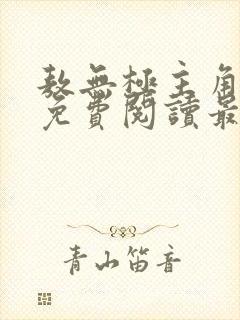 敖無極主角
免費閱讀最
青山笛音